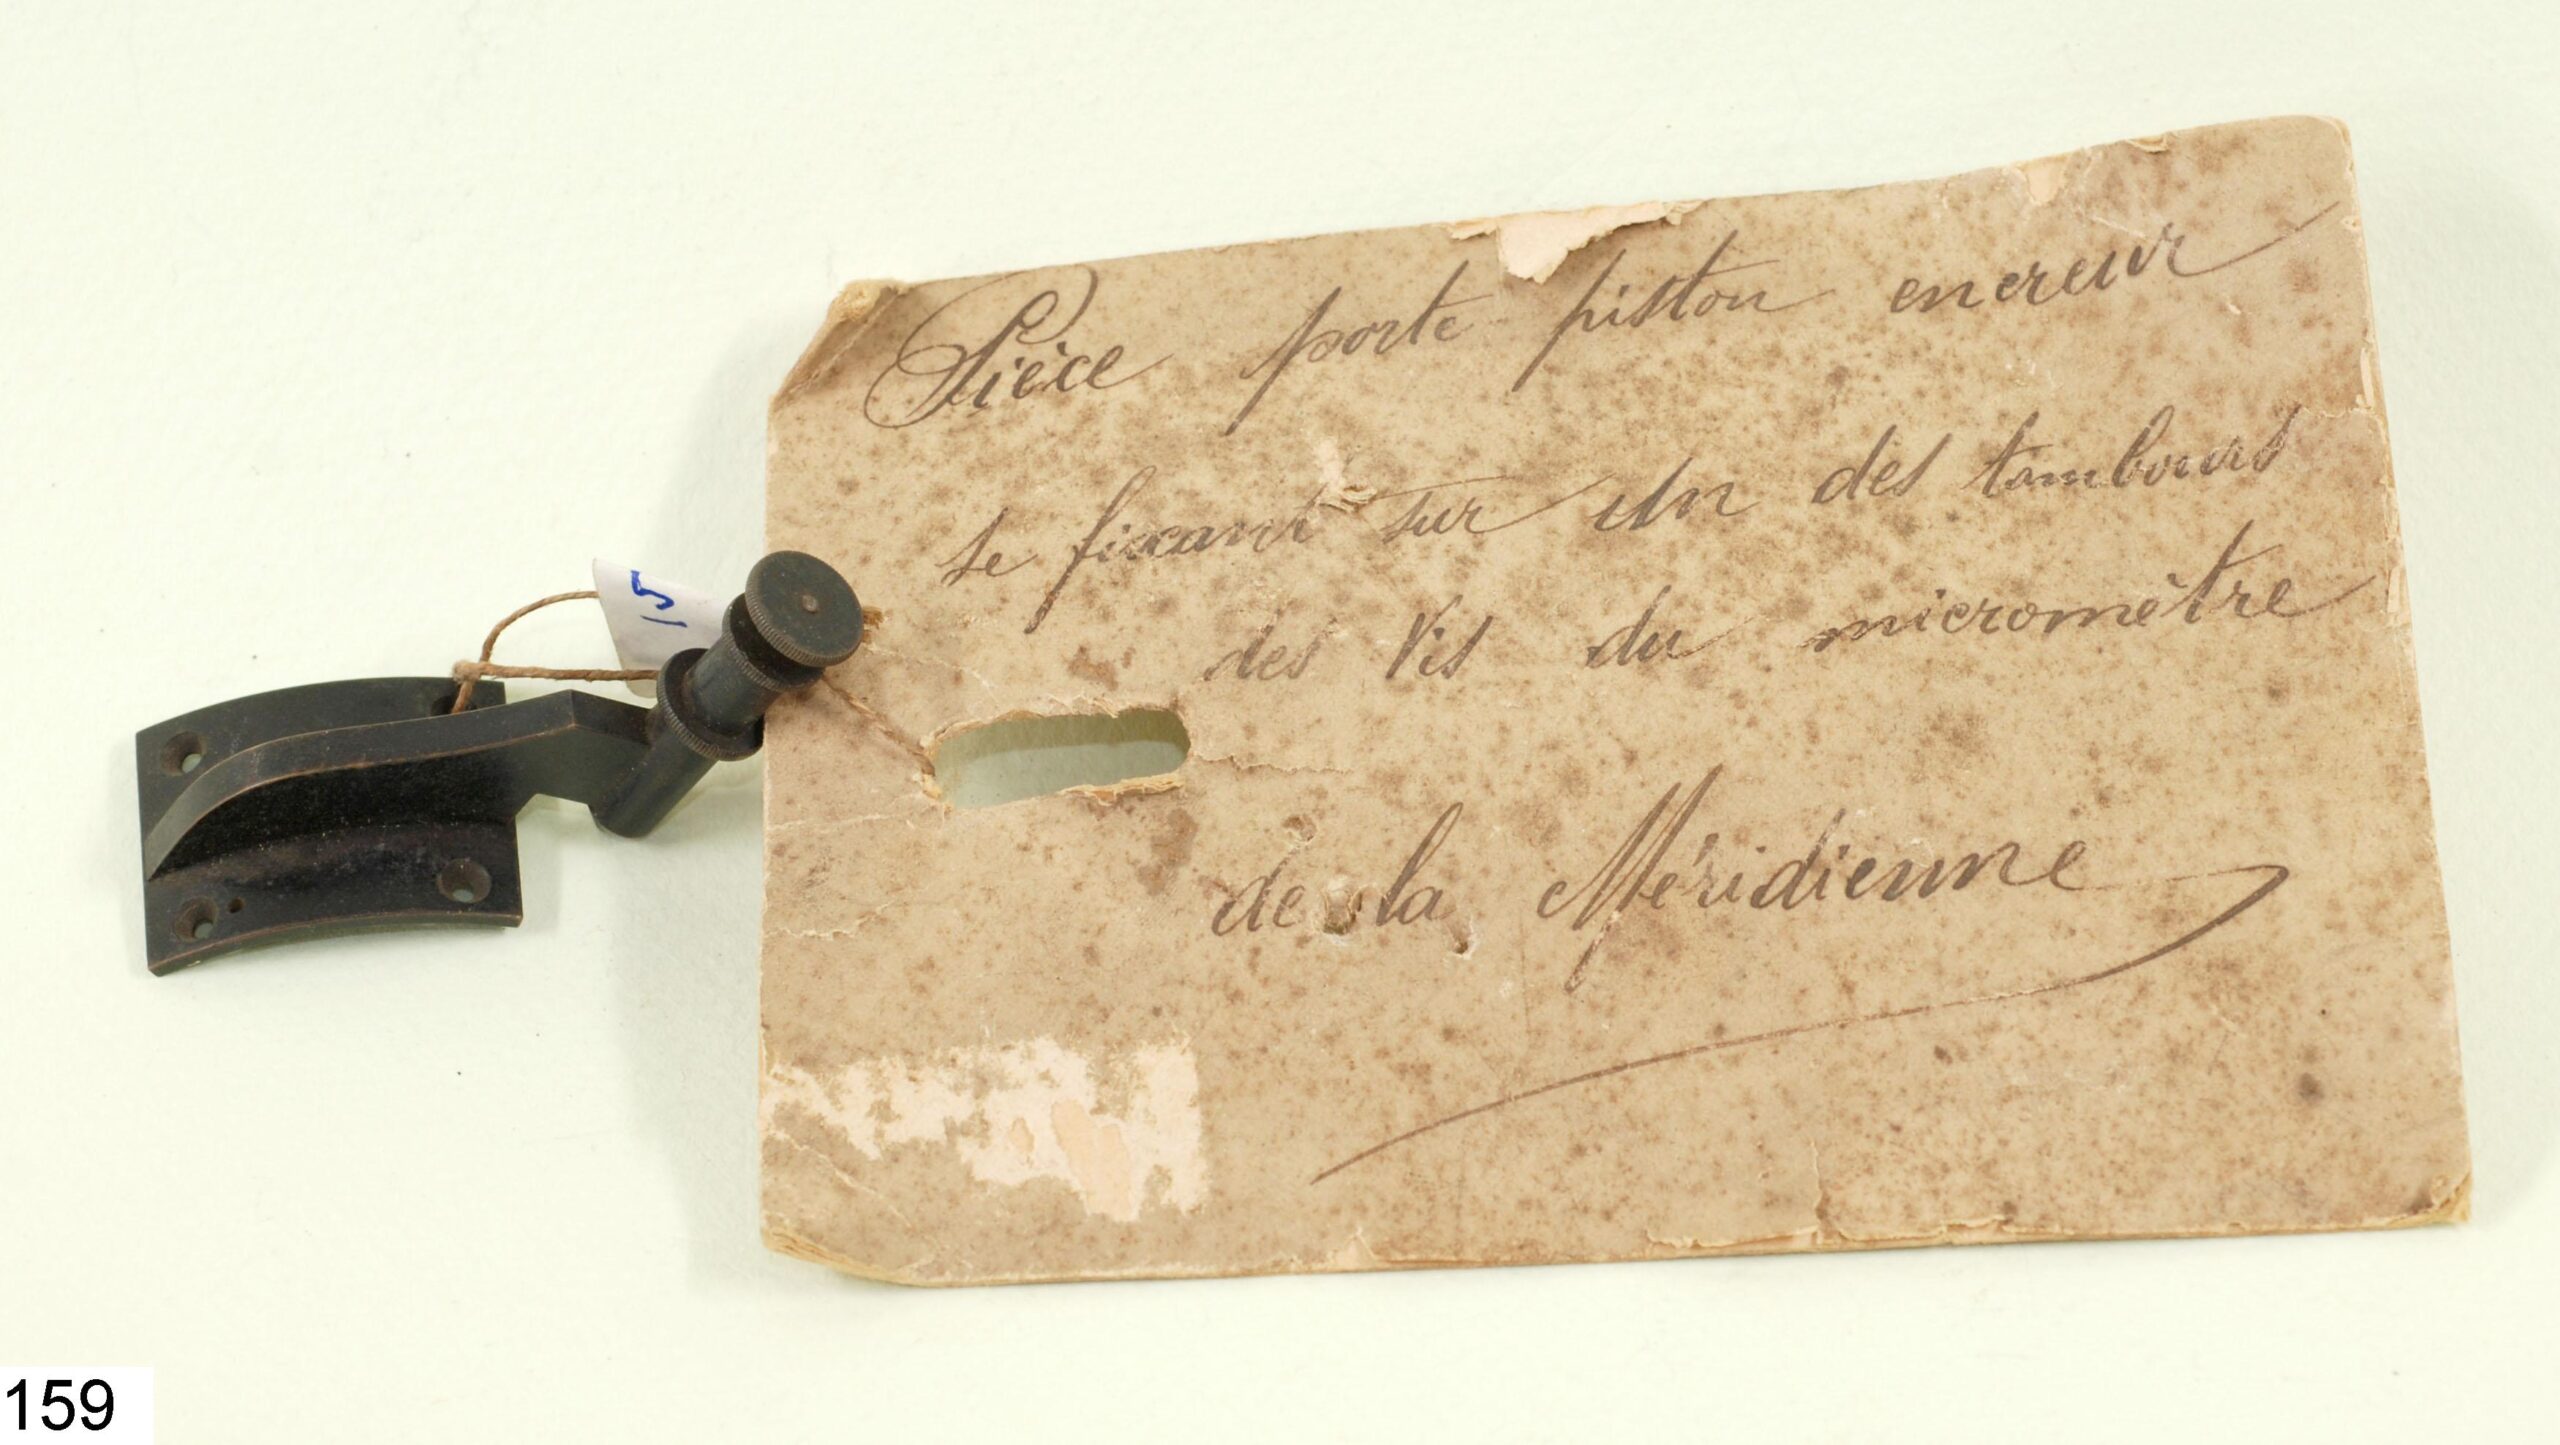 Pièce porte-piston encreur
se fixant sur un des tambours
des Vis du micromètre
de la Méridienne
15
159